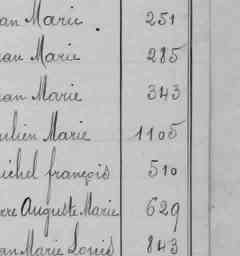 an Marie 251
an Marie 285
an Marie 343
ulien Marie 1105
ichel françois 510
rre Auguste Marie 629
an Marie Louis 843